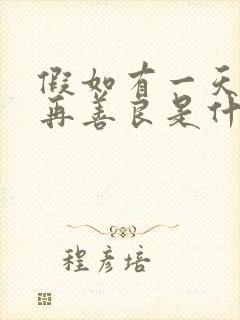 假如有一天
再善良是什
程彦培